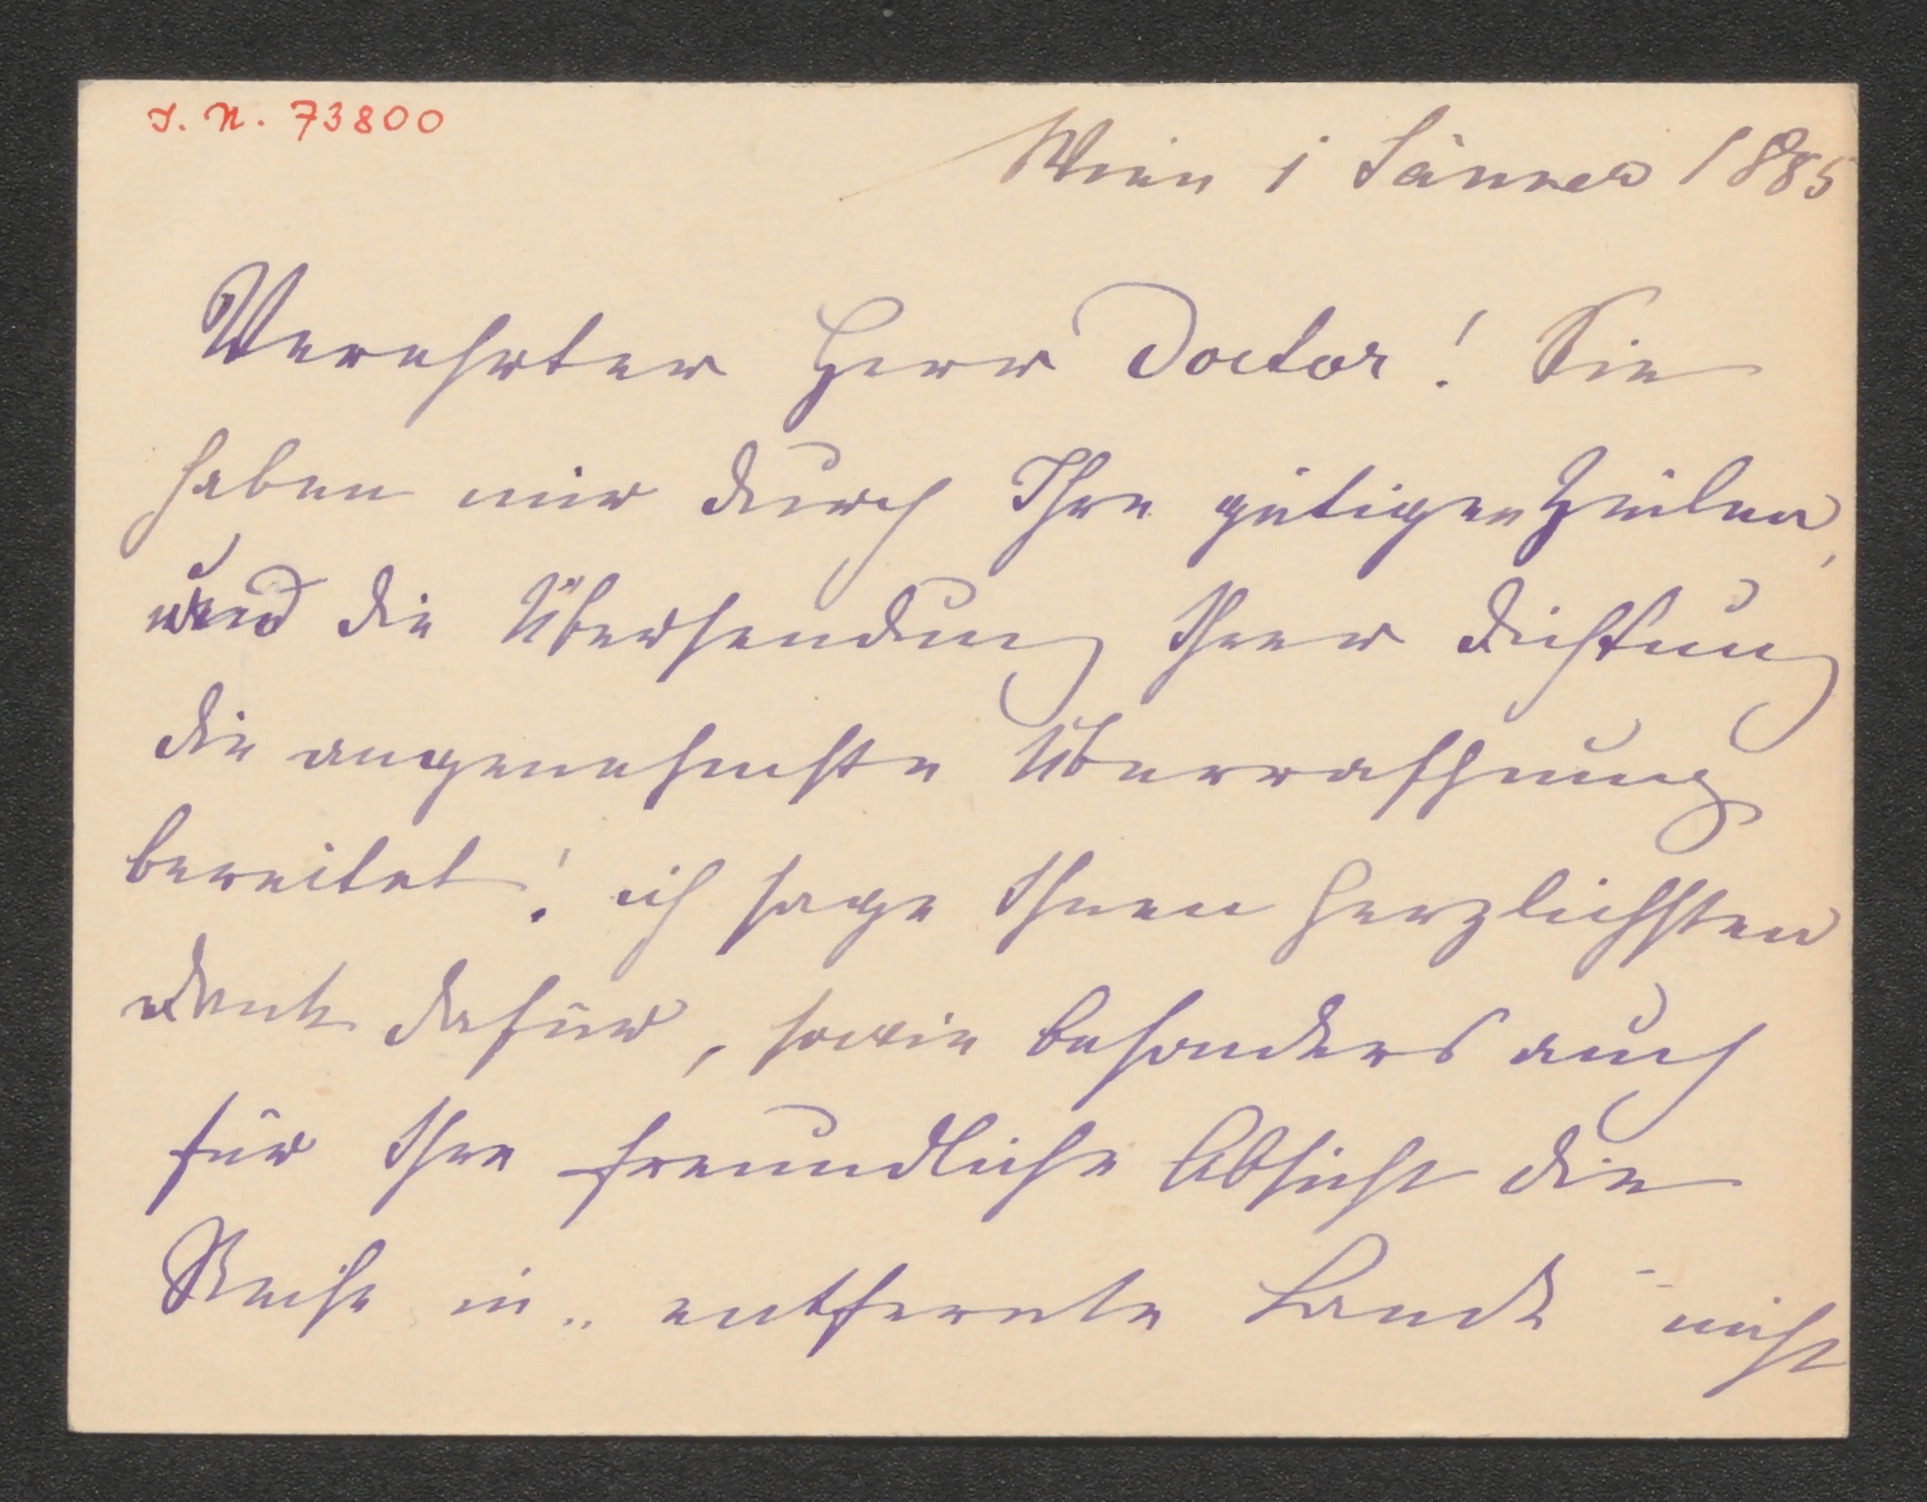 I. N. 73800
Wien 1 Jänner 1885
Verehrter Herr Doctor! Sie
haben mir durch Ihre gütigen Zeilen,
und die Übersendung Ihrer Dichtung
die angenehmste Überraschung
bereitet! ich sage Ihnen herzlichsten
Dank dafür, sowie besonders auch
für Ihre freundliche Absicht die
Reise in „entfernte Lande" nicht